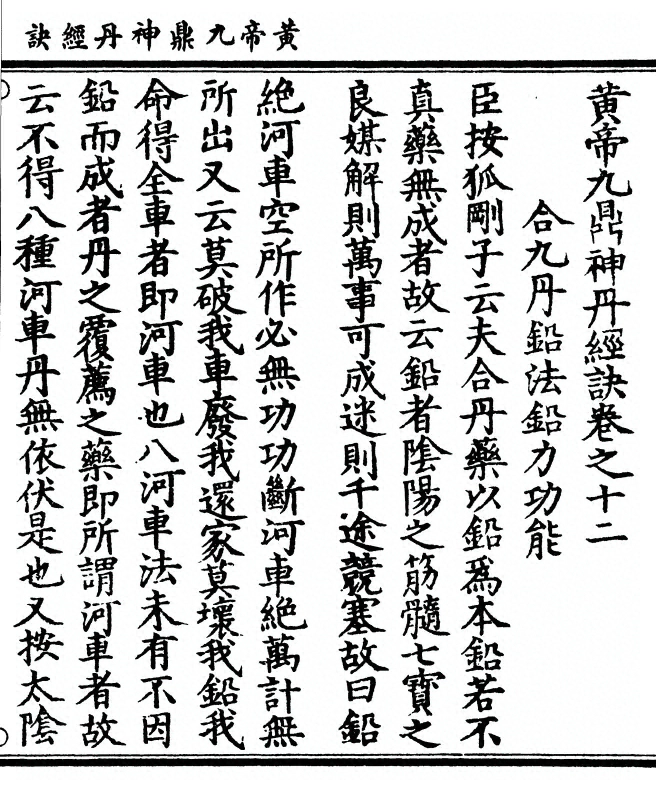 黃帝九鼎神丹經訣
黃帝九鼎神丹經訣卷之十二
合九丹鉛法鉛力功能
臣按狐剛子云夫合丹藥以鉛爲本鉛若不
真藥無成者故云鉛者陰陽之筋髓七寶之
良媒解則萬事可成迷則千途競塞故曰鉛
絶河車空所作必無功功斷河車絶萬計無
所出又云莫破我車廢我還家莫壞我鉛我
命得全車者即河車也八河車法未有不因
鉛而成者丹之覆薦之藥即所謂河車者故
云不得八種河車丹無依伏是也又按太陰